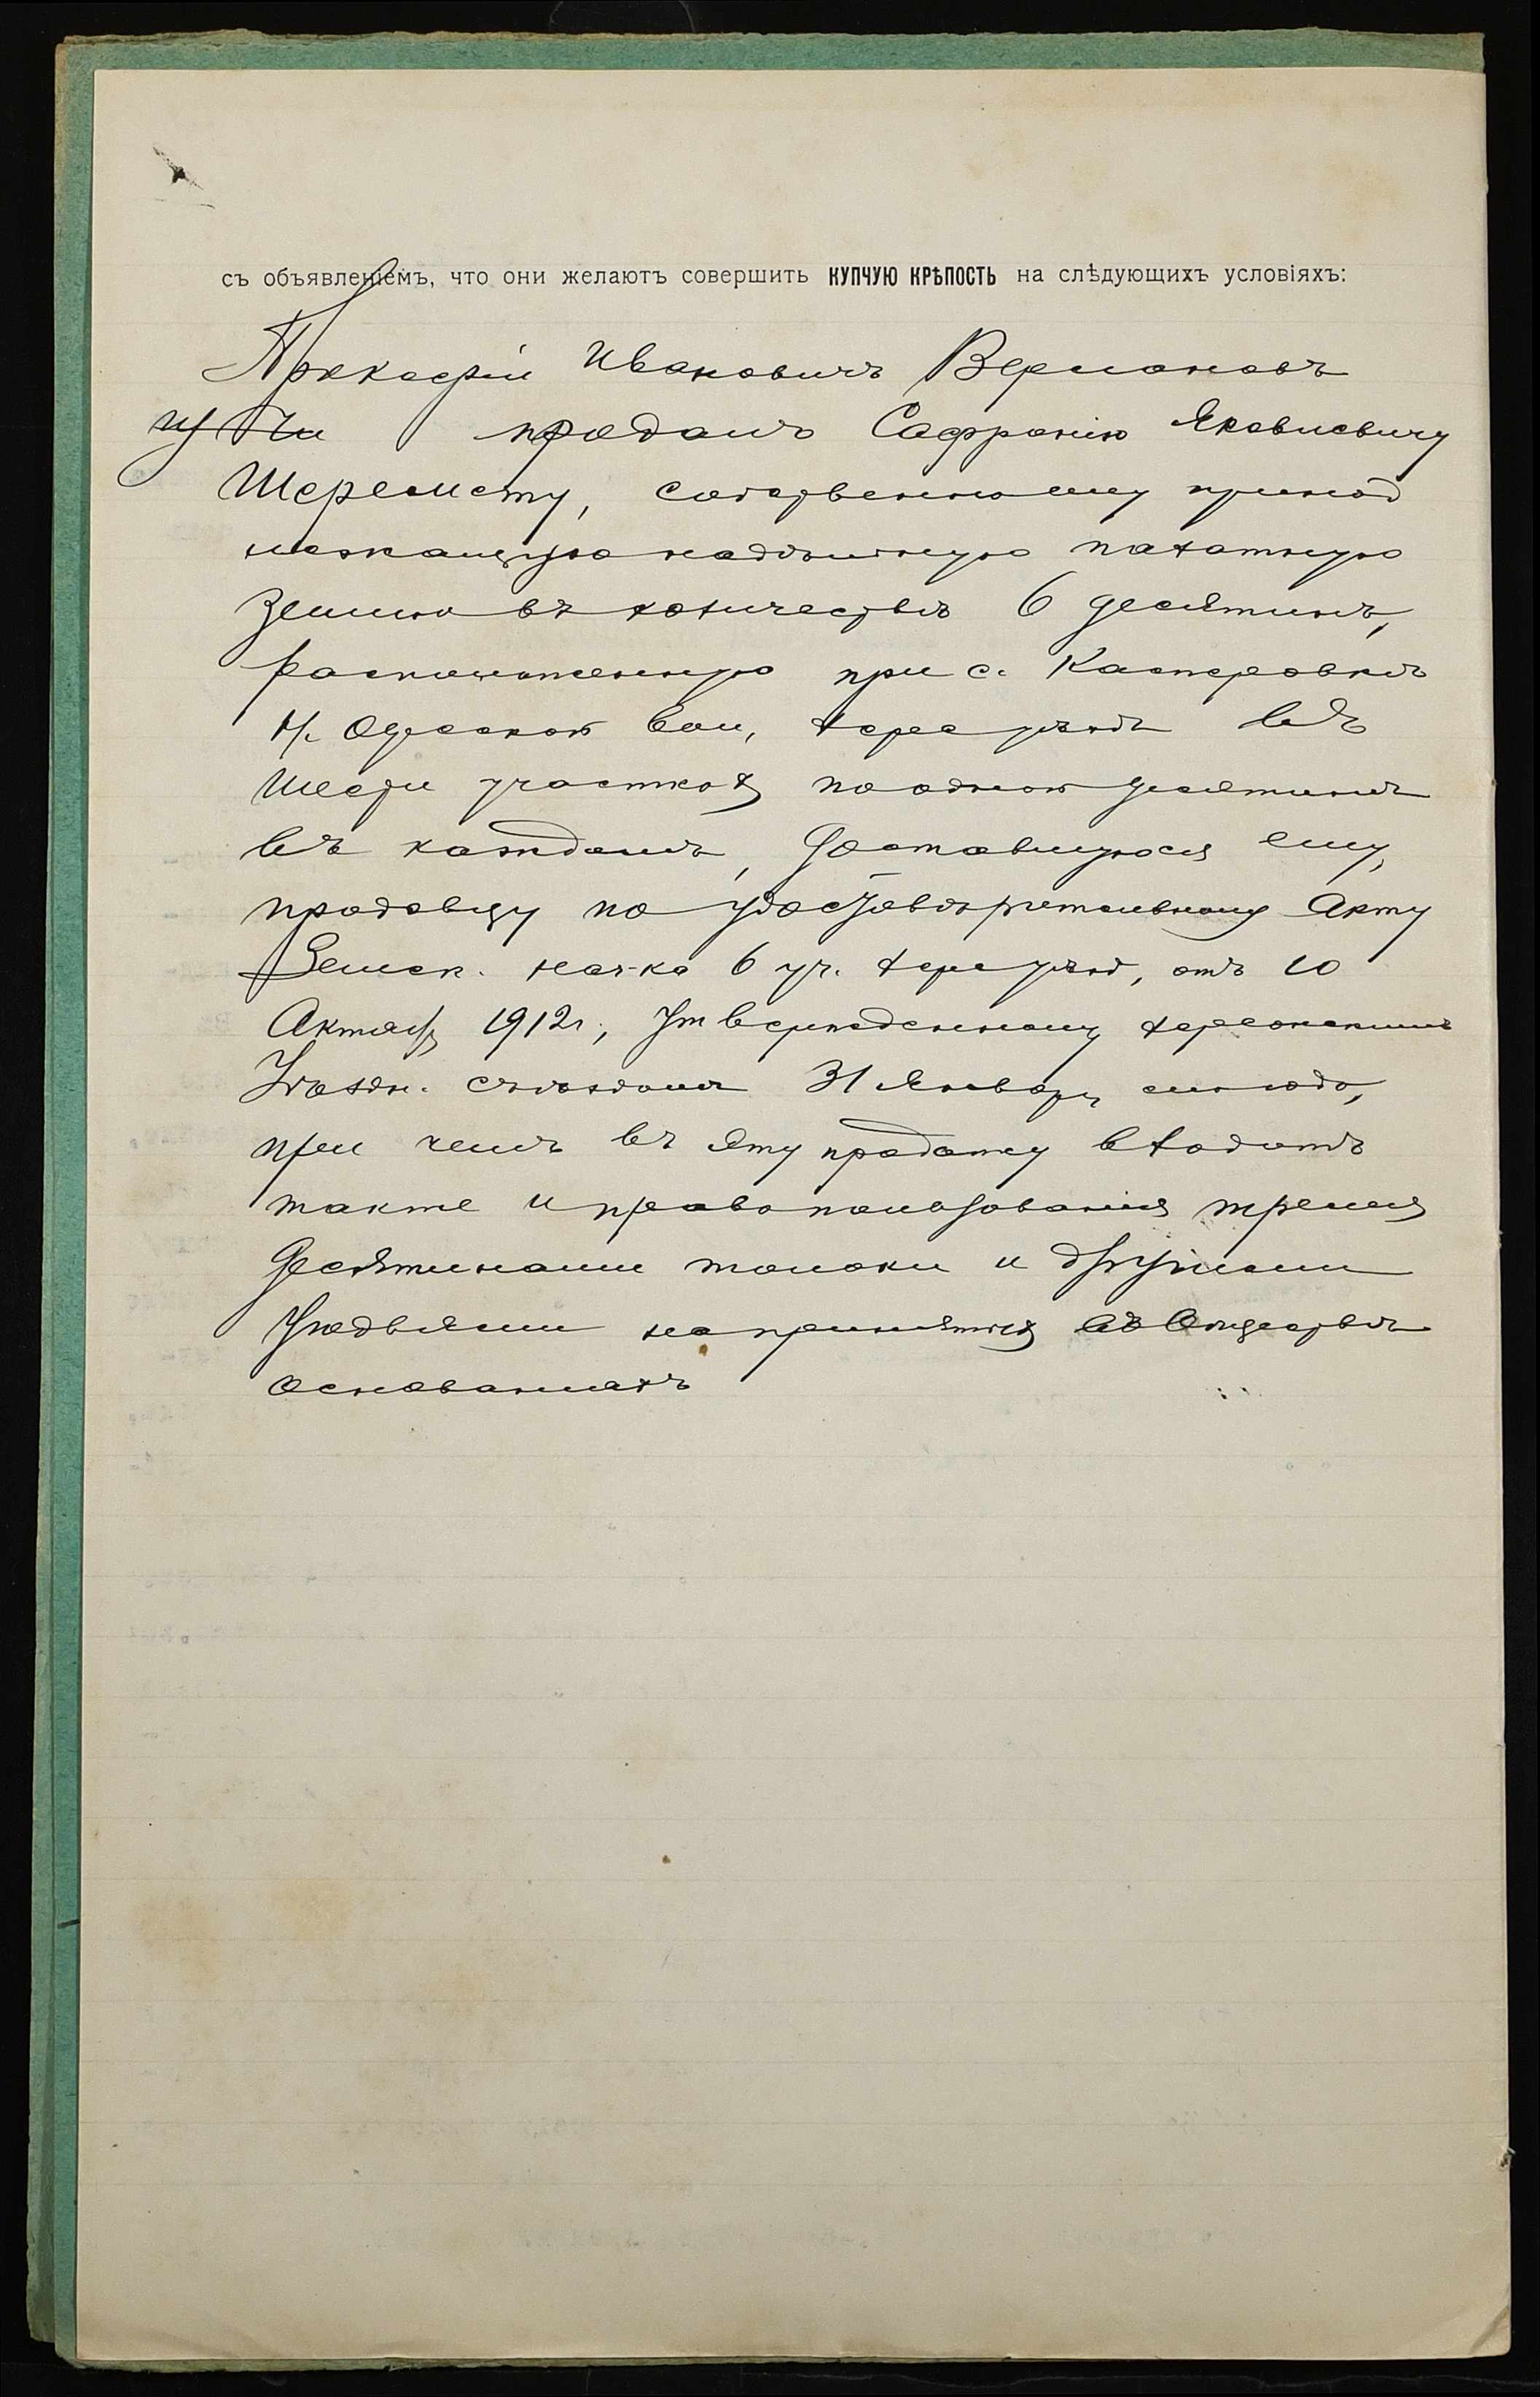 съ объявленіемъ, что они желаютъ совершить КУПЧУЮ КРѢПОСТЬ на слѣдующихъ условіяхъ:
Прокофій Ивановичъ Вермановъ
продалъ Сафронію Яковлевичу
Шеремету, собственно ему принад
лежащую надѣльную пахатную
Землю въ количествѣ 6 десятинъ,
расположенную при с. Касперовкѣ
Н. Одесской вол, Херс уѣзда въ
шести участках по одной десятинѣ
въ каждомъ, доставшуюся ему,
продавцу по удостовѣрительному Акту
Земск. нач-ка 6 уч. Херс уѣзд, отъ 10
Октяб 1912г, Утвержденному Херсонскимъ
Уѣздн. съѣздомъ 31 Января сего года,
при чемъ въ эту продажу входитъ
также и право пользованія тремя
десятинами толоки и другими
Угодьями на принятых въ Обществѣ
основаніяхъ